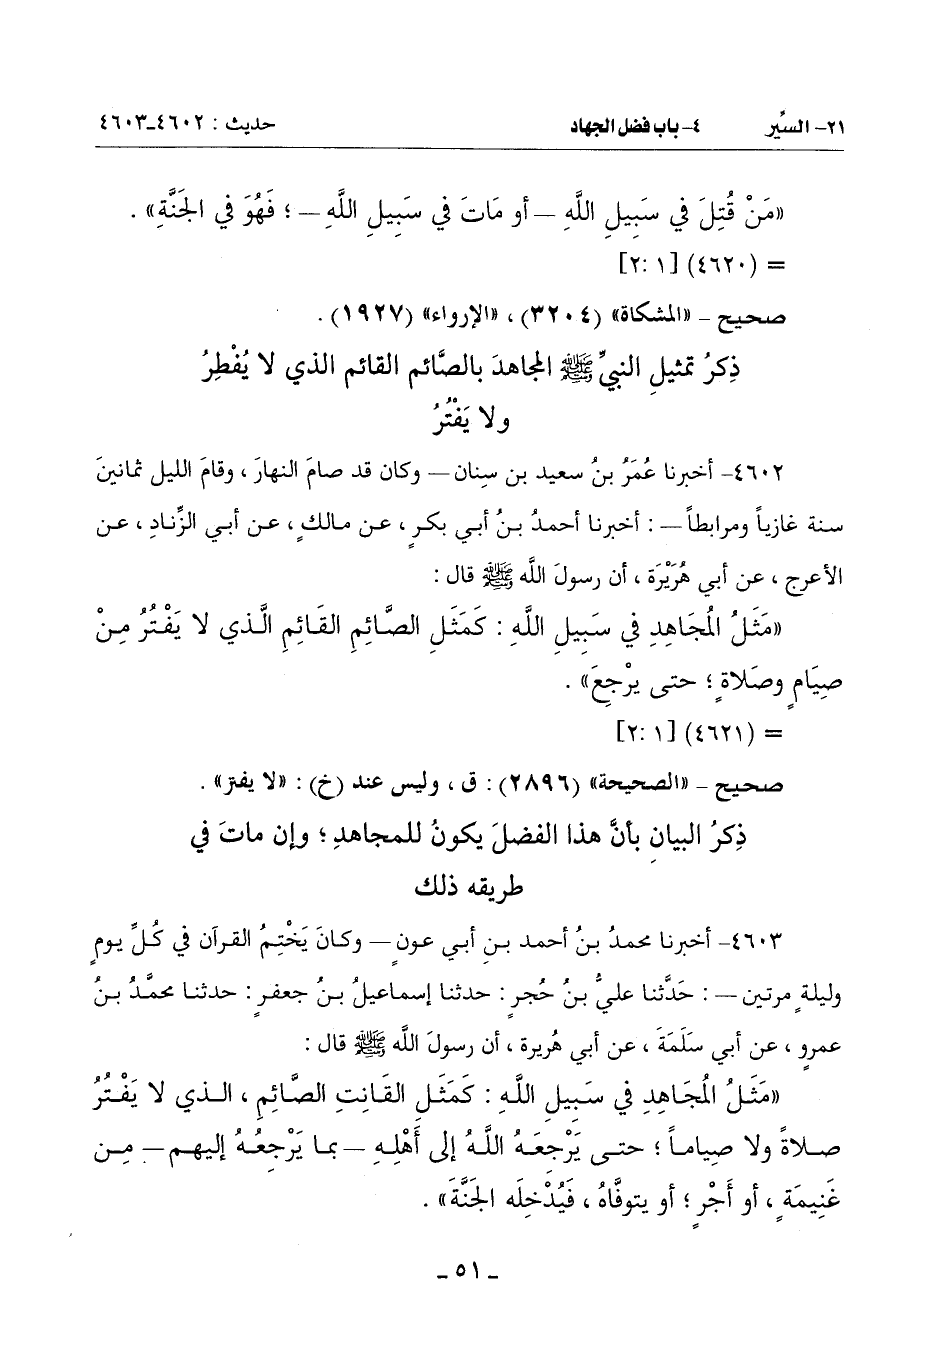 ٢١- السِّير ٤- باب فضل الجهاد حديث : ٤٦٠٢-٤٦٠٣
«مَنْ قُتِلَ في سَبِيلِ اللَّهِ – أو مَاتَ في سَبِيلِ اللَّهِ – ؛ فَهُوَ في الجَنَّةِ» .
= (٤٦٢٠) [١ :٢]
صحيح – «المشكاة» (٣٢٠٤) ، «الإرواء» (١٩٢٧) .
ذِكرُ تمثيلِ النبيِّ ﷺ المجاهدَ بالصَّائم القائم الذي لا يُفْطِرُ
ولا يَفْتُرُ
٤٦٠٢- أخبرنا عُمَرُ بنُ سعيد بن سِنان – وكان قد صامَ النهارَ ، وقامَ الليل ثمانينَ
سنة غازياً ومرابطاً – : أخبرنا أحمدُ بنُ أبي بكرٍ ، عن مالكٍ ، عن أبي الزِّنادِ ، عن
الأعرج ، عن أبي هُرَيْرَة ، أن رسولَ اللَّه ﷺ قال :
«مَثَلُ المُجَاهِدِ في سَبِيلِ اللَّهِ : كَمَثَلِ الصَّائِمِ القَائِمِ الَّذي لا يَفْتُرُ مِنْ
صِيَامٍ وصَلاةٍ ؛ حتى يرْجِعَ» .
= (٤٦٢١) [١ :٢]
صحيح – «الصحيحة» (٢٨٩٦) : ق ، وليس عند (خ) : «لا يفتر» .
ذِكرُ البيانِ بأنَّ هذا الفضلَ يكونُ للمجاهدِ ؛ وإن ماتَ في
طريقه ذلك
٤٦٠٣- أخبرنا محمدُ بنُ أحمد بنِ أبي عونٍ – وكانَ يَخْتِمُ القرآن في كُلِّ يومٍ
وليلةٍ مرتين – : حَدَّثنا عليُّ بنُ حُجرٍ : حدثنا إسماعيلُ بنُ جعفرٍ : حدثنا محمَّدُ بنُ
عمرٍو ، عن أبي سَلَمَةَ ، عن أبي هُريرة ، أن رسولَ اللَّه ﷺ قال :
«مَثَلُ المُجَاهِدِ في سَبِيلِ اللَّهِ : كَمَثَلِ القَانِتِ الصَّائِمِ ، الذي لا يَفْتُرُ
صلاةً ولا صِياماً ؛ حتى يَرْجِعَهُ اللَّهُ إلى أَهْلِهِ – بما يَرْجِعُهُ إليهم – مِن
غَنِيمَةٍ ، أو أَجْرٍ ؛ أو يتوفَّاهُ ، فَيُدْخِلَه الجَنَّةَ» .
- ٥١ -